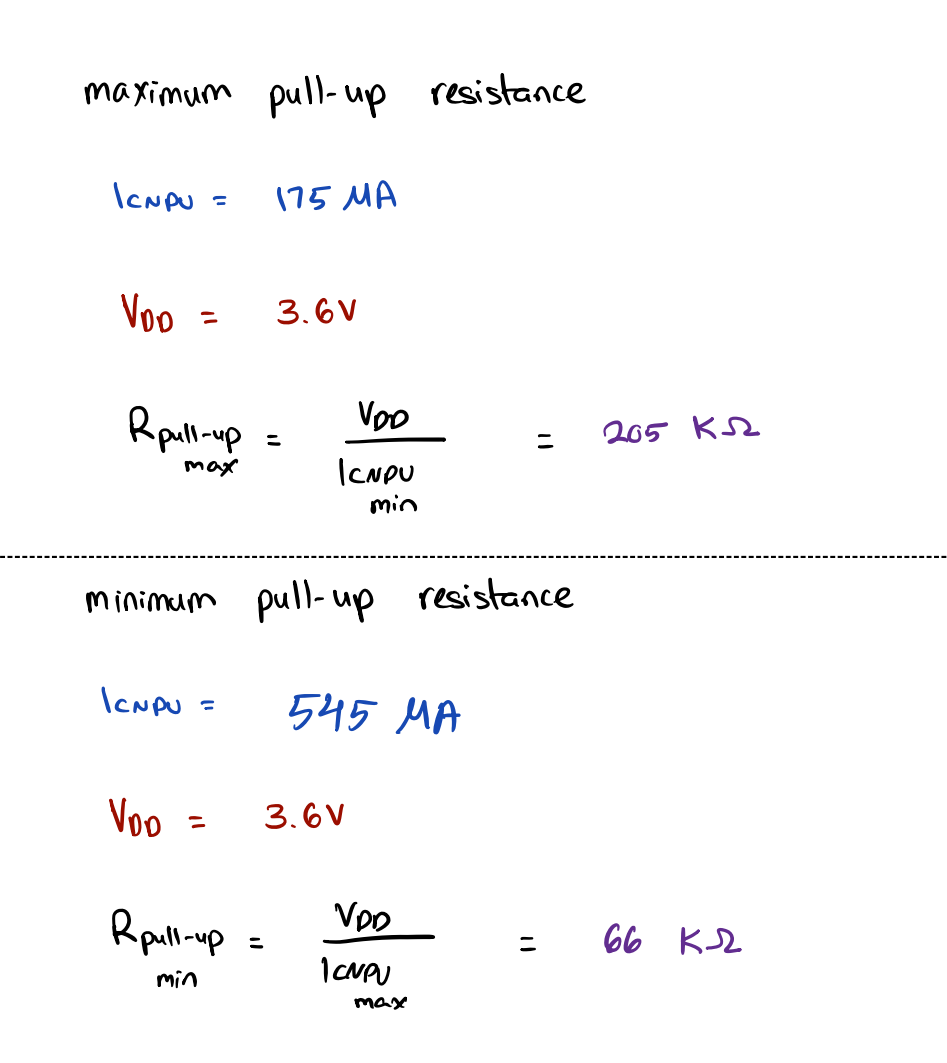 maximum pull-up resistance
ICNPU = 175 μA
VDD = 3.6V
Rpull-up max = VDD / ICNPU min = 205 KΩ
minimum pull-up resistance
ICNPU = 545 μA
VDD = 3.6V
Rpull-up min = VDD / ICNPU max = 66 KΩ